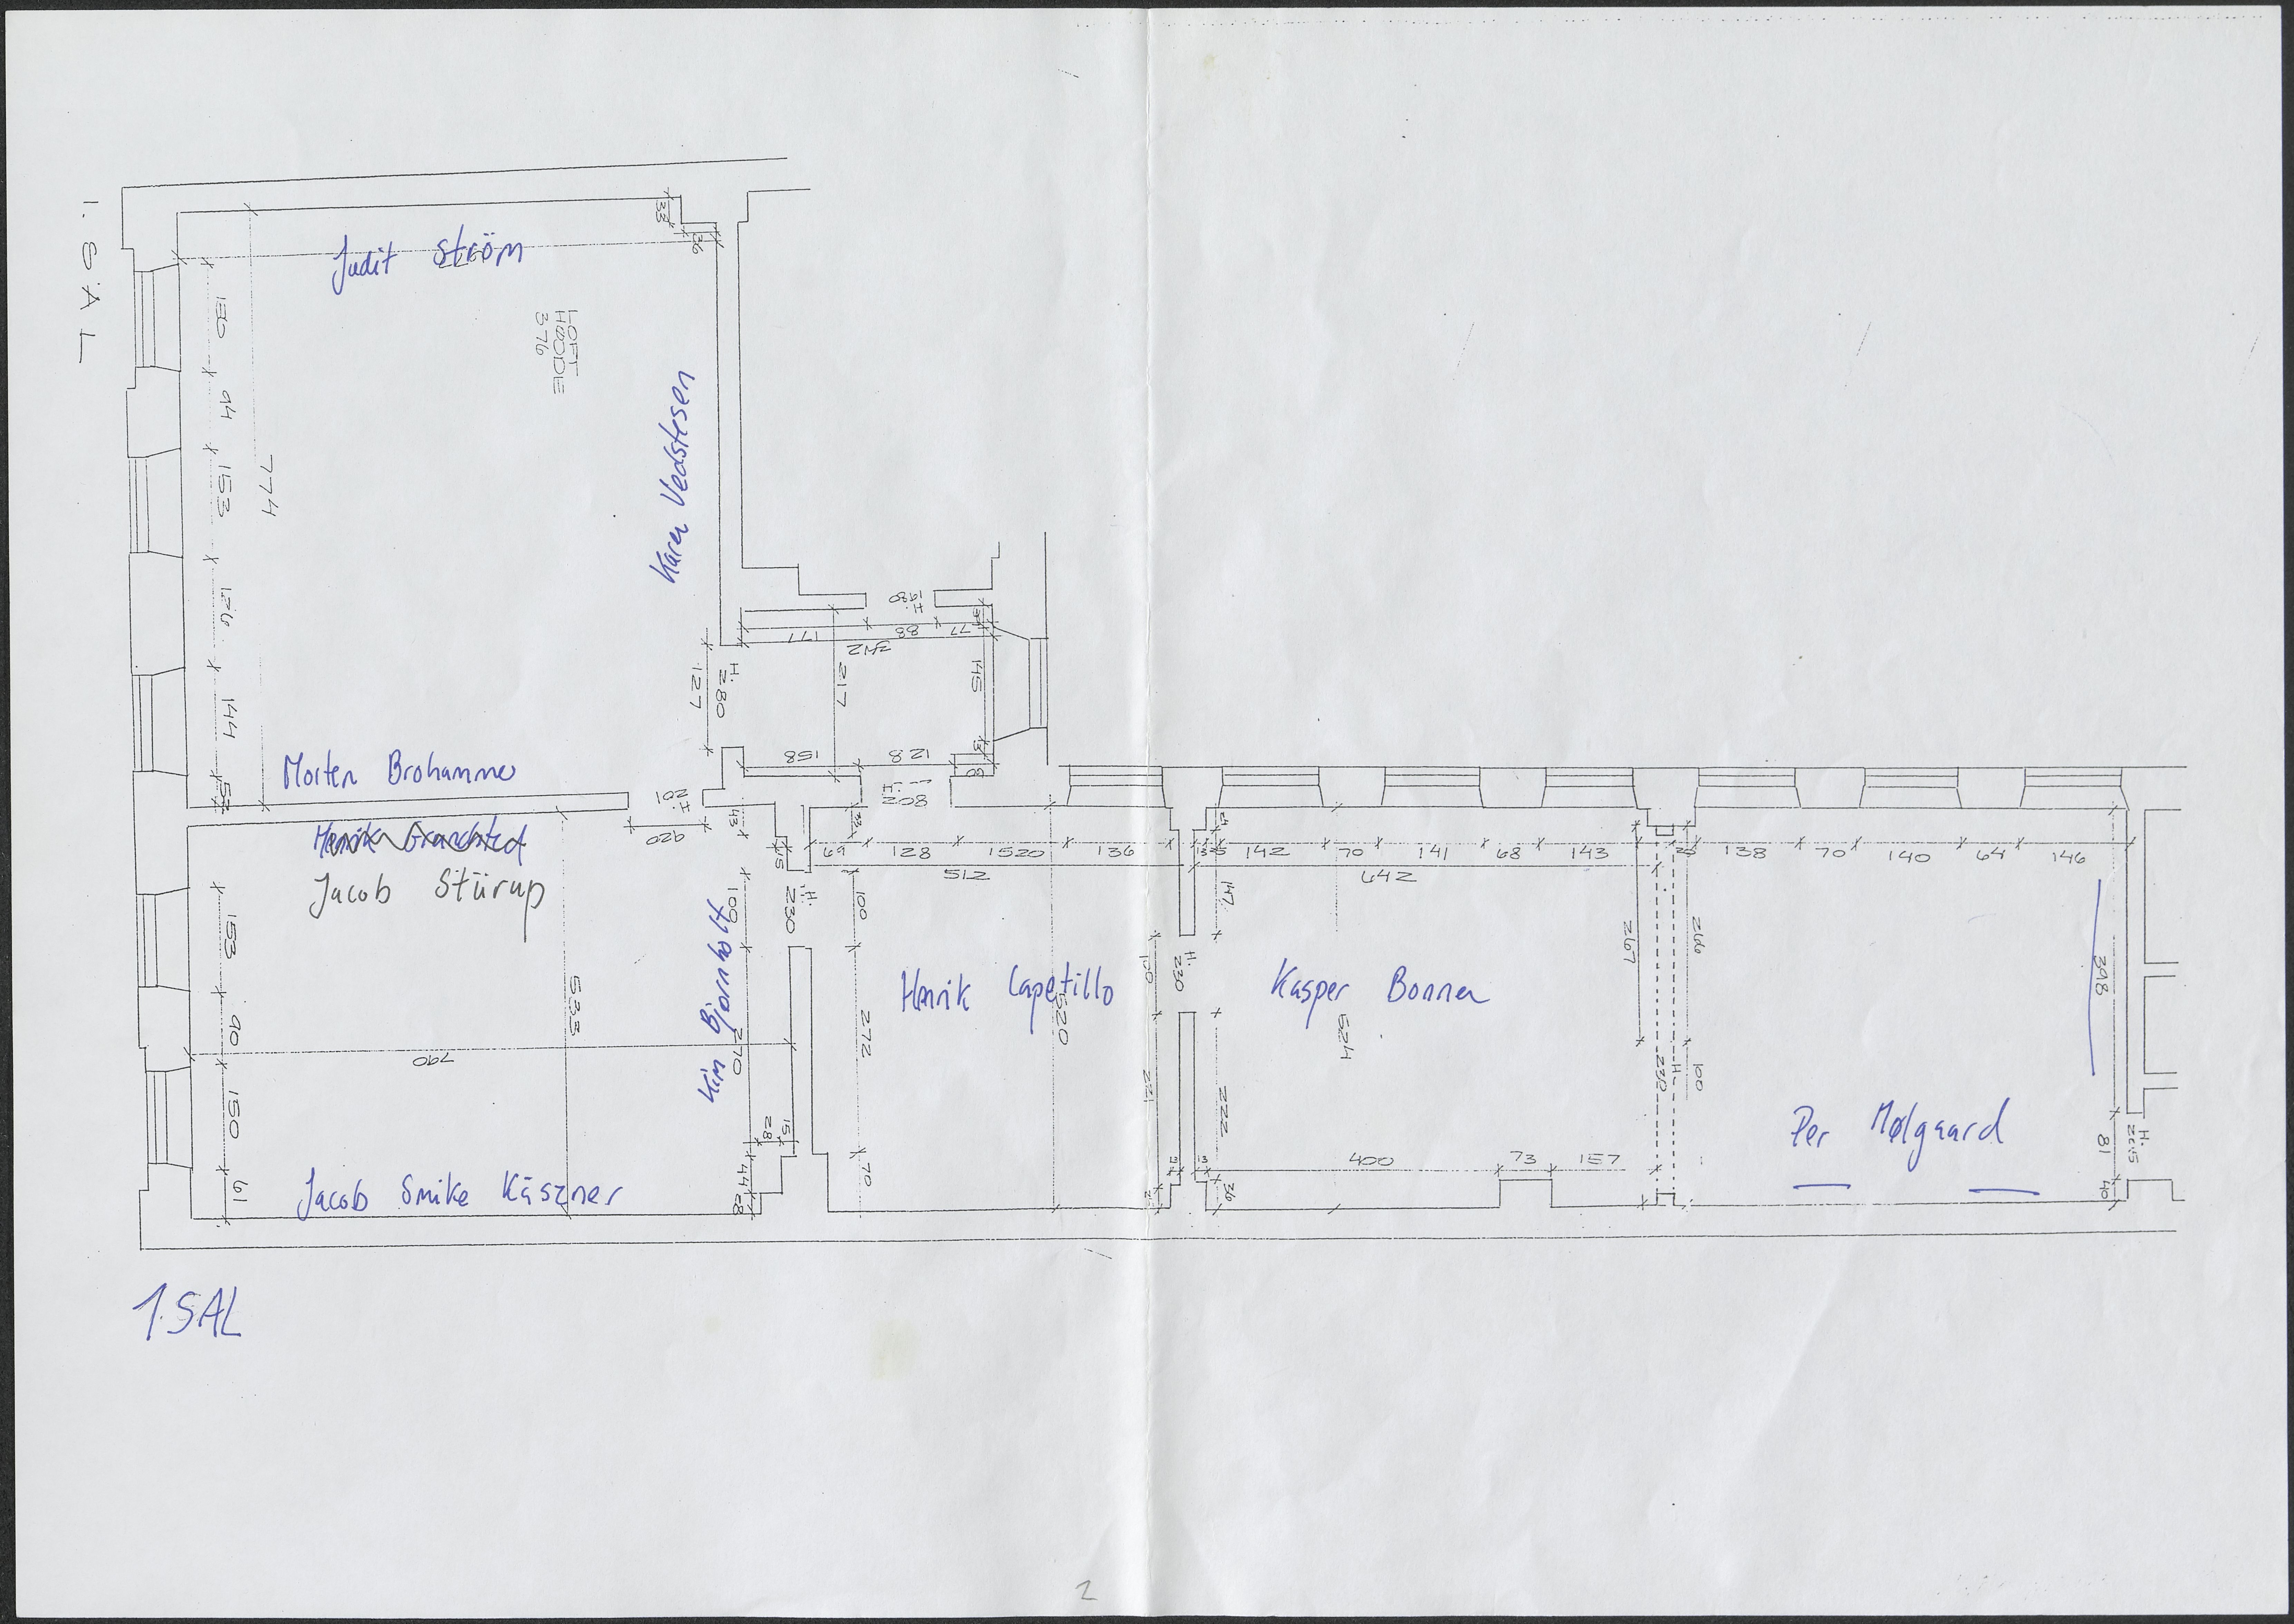 1. SAL
33
36
Judit Ström
LOFT
HØDDE
376
130
94
153
774
126
144
57
Karen Vedstesen
H: 1980
171
88
77
242
H: 280
127
217
145
158
128
H: 802
Morten Brohammer
H: 201
920
43
Jacob Stürup
15
H: 230
109
153
90
150
61
533
790
Kim Bjørnholt
270
28
15
44
28
Jacob Smike Käszner
33
69
128
1520
136
512
100
272
70
Henrik Capetillo
520
H: 230
221
13
142
70
141
68
143
642
147
222
36
Kasper Bonnen
624
400
73
157
267
266
H: 230
100
138
70
140
64
146
398
Per Mølgaard
81
40
1. SAL
2